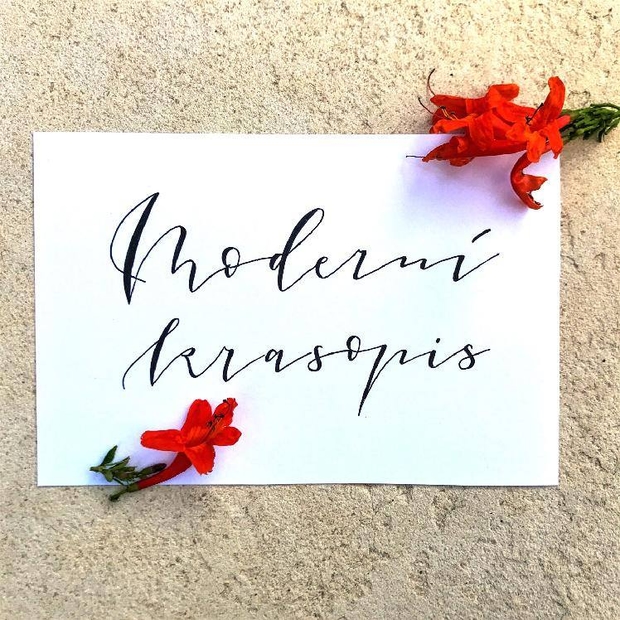 Moderní
krasopis